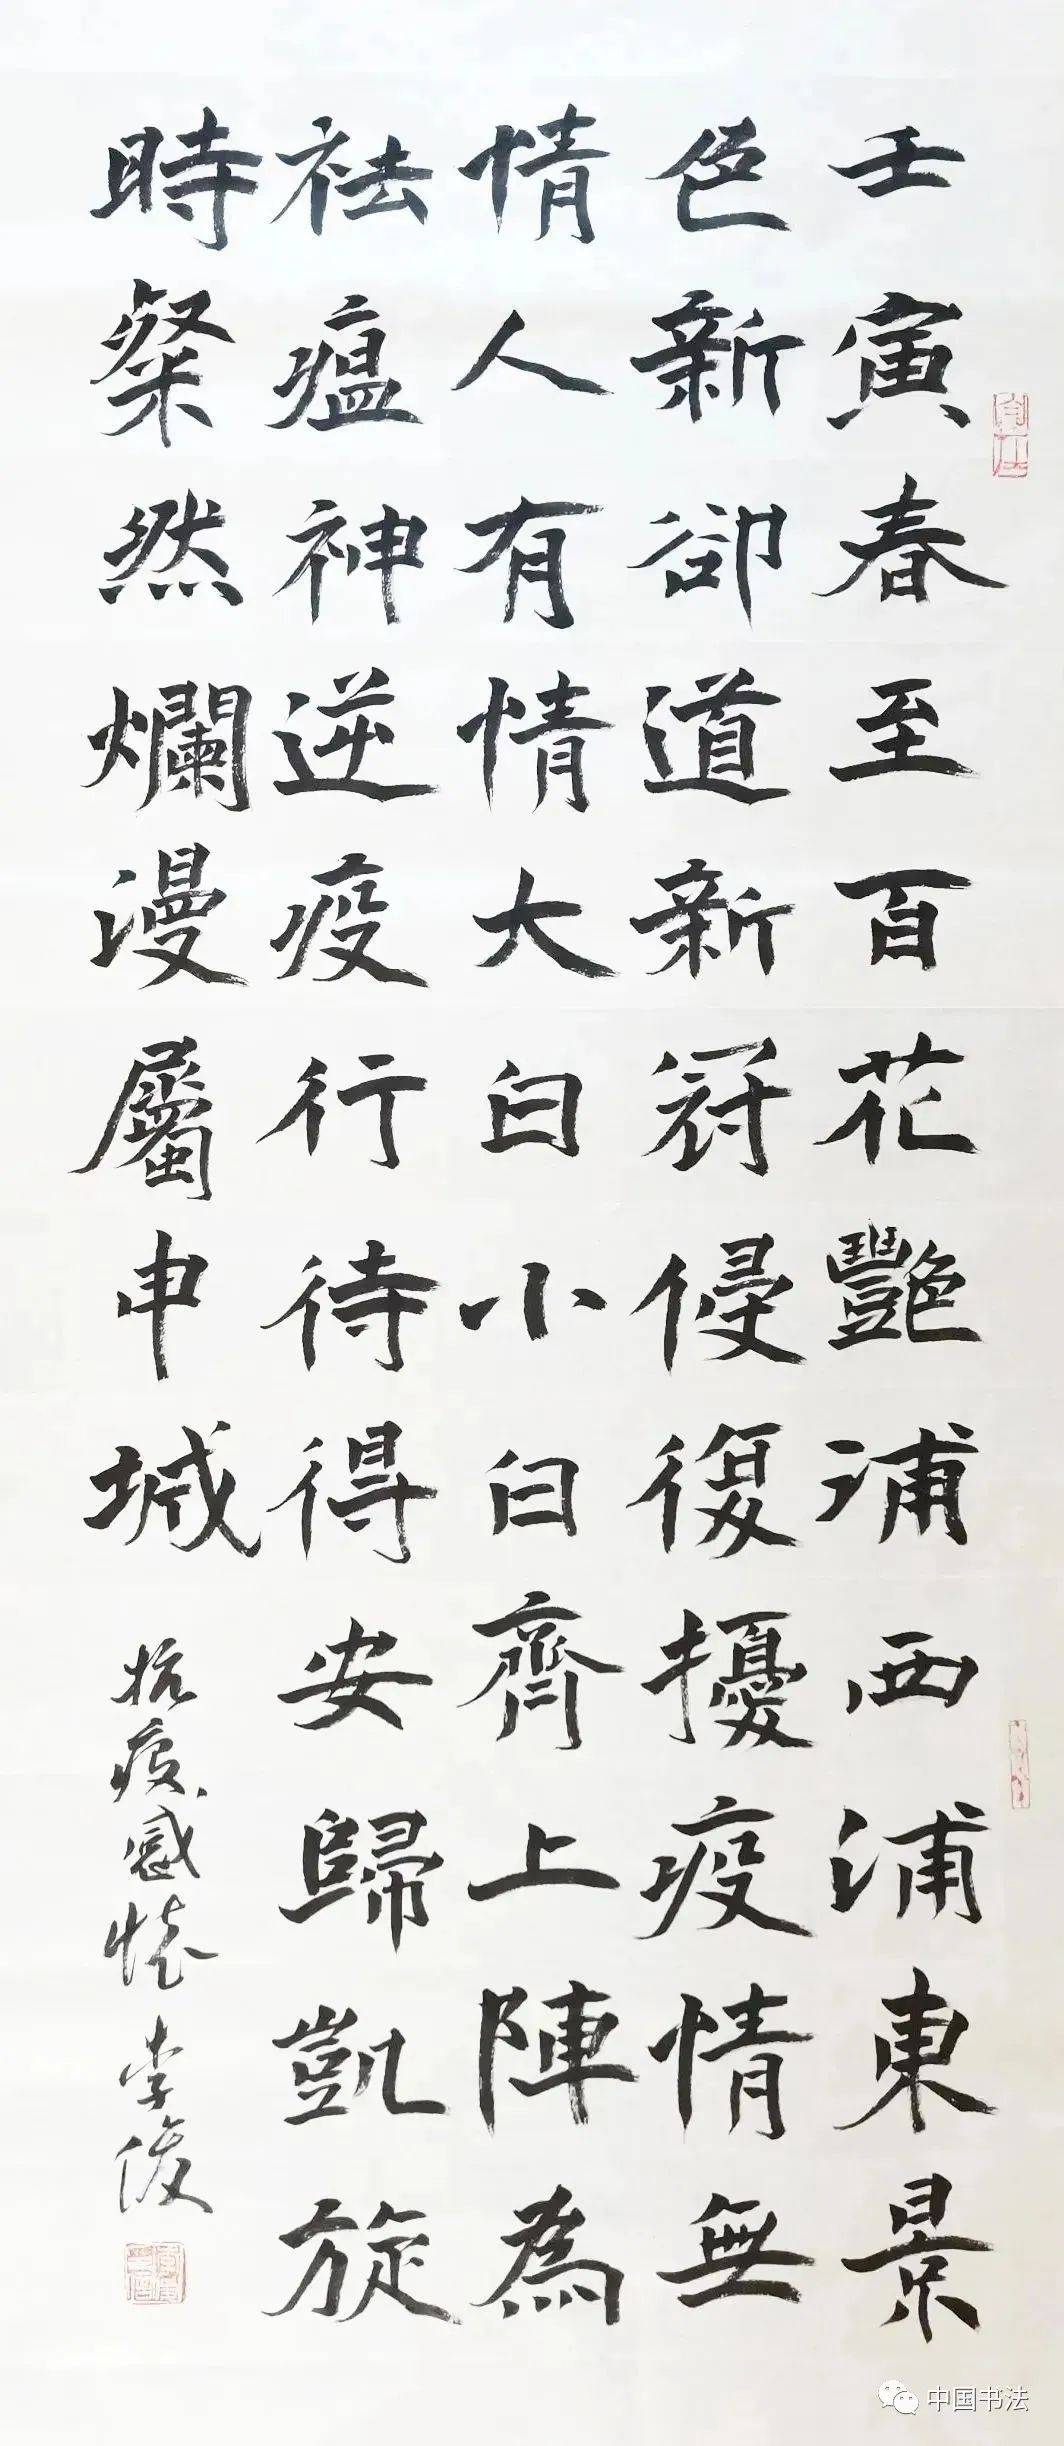 壬寅春至百花艷浦西浦東景
色新卻道新冠侵復擾疫情無
情人有情大白小白齊上陣為
祛瘟神逆疫行待得安歸凱旋
時粲然爛漫屬申城
抗疫感懷 李俊
中国书法